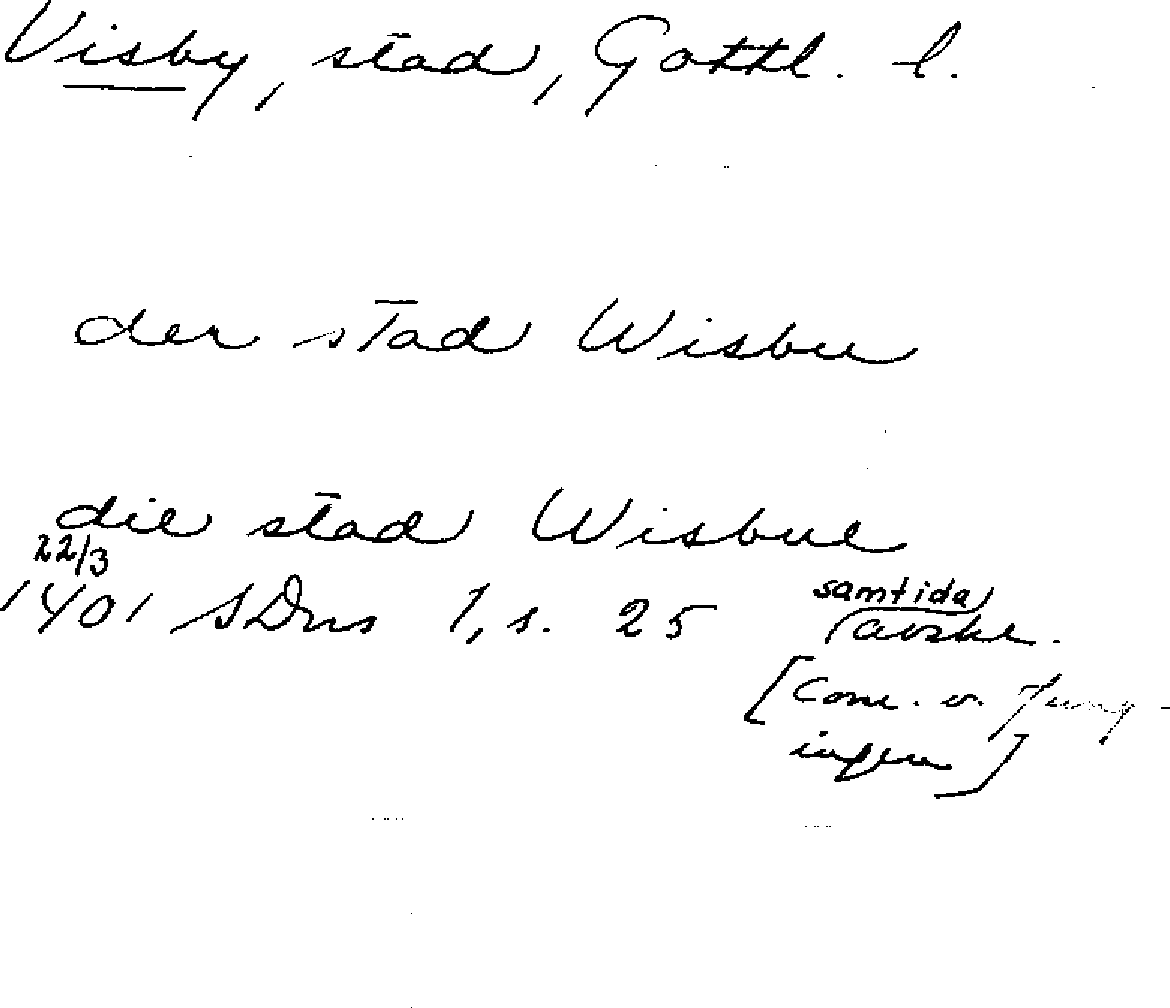 Visby, stad, Gottl. l.
der stad Wisbu
die stad Wisbue
22/3
1401 SDns 1, s. 25 samtida
avskr.
[Conr. v. Jung-
ingen]